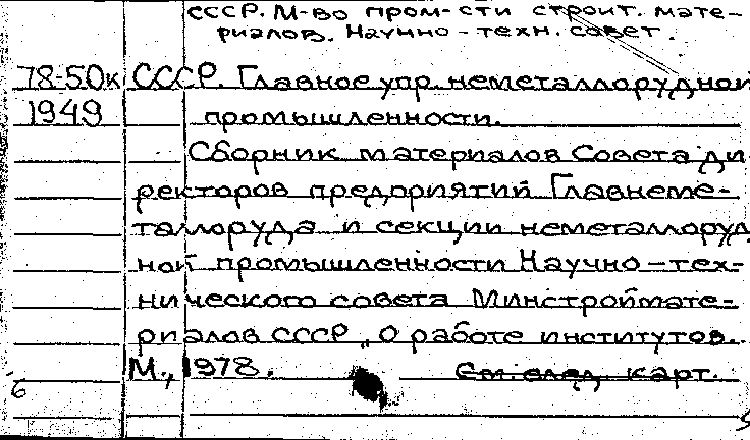 СССР. М-во пром-сти строит. мате-
риалов. Научно-техн. совет.
78-50к СССР. Главное упр. неметаллорудной
1949 промышленности.
Сборник материалов Совета ди
ректоров предприятий Главнеме-
таллоруда и секции неметаллоруд
ной промышленности Научно-тех-
нического совета Минстроймате-
риалов СССР „О работе институтов.
М., 1978. См. след. карт.
6